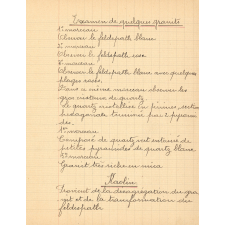 Examen de quelques granits
1er morceau
Observer le feldspath blanc
2e morceau
Observer le feldspath rose
3e morceau
Observer le feldspath blanc avec quelques
plages roses.
Dans ce même morceau observer les
gros cristaux de quartz
Le quartz cristallise en prismes
hexagonaux terminés par 2 pyrami
des.
4e morceau
Composé de quartz est entouré de
petites pyramides de quartz blanc.
5e morceau
Granit très riche en mica
Kaolin
Provient de la désagrégation du gra
nit et de la transformation du
feldspath